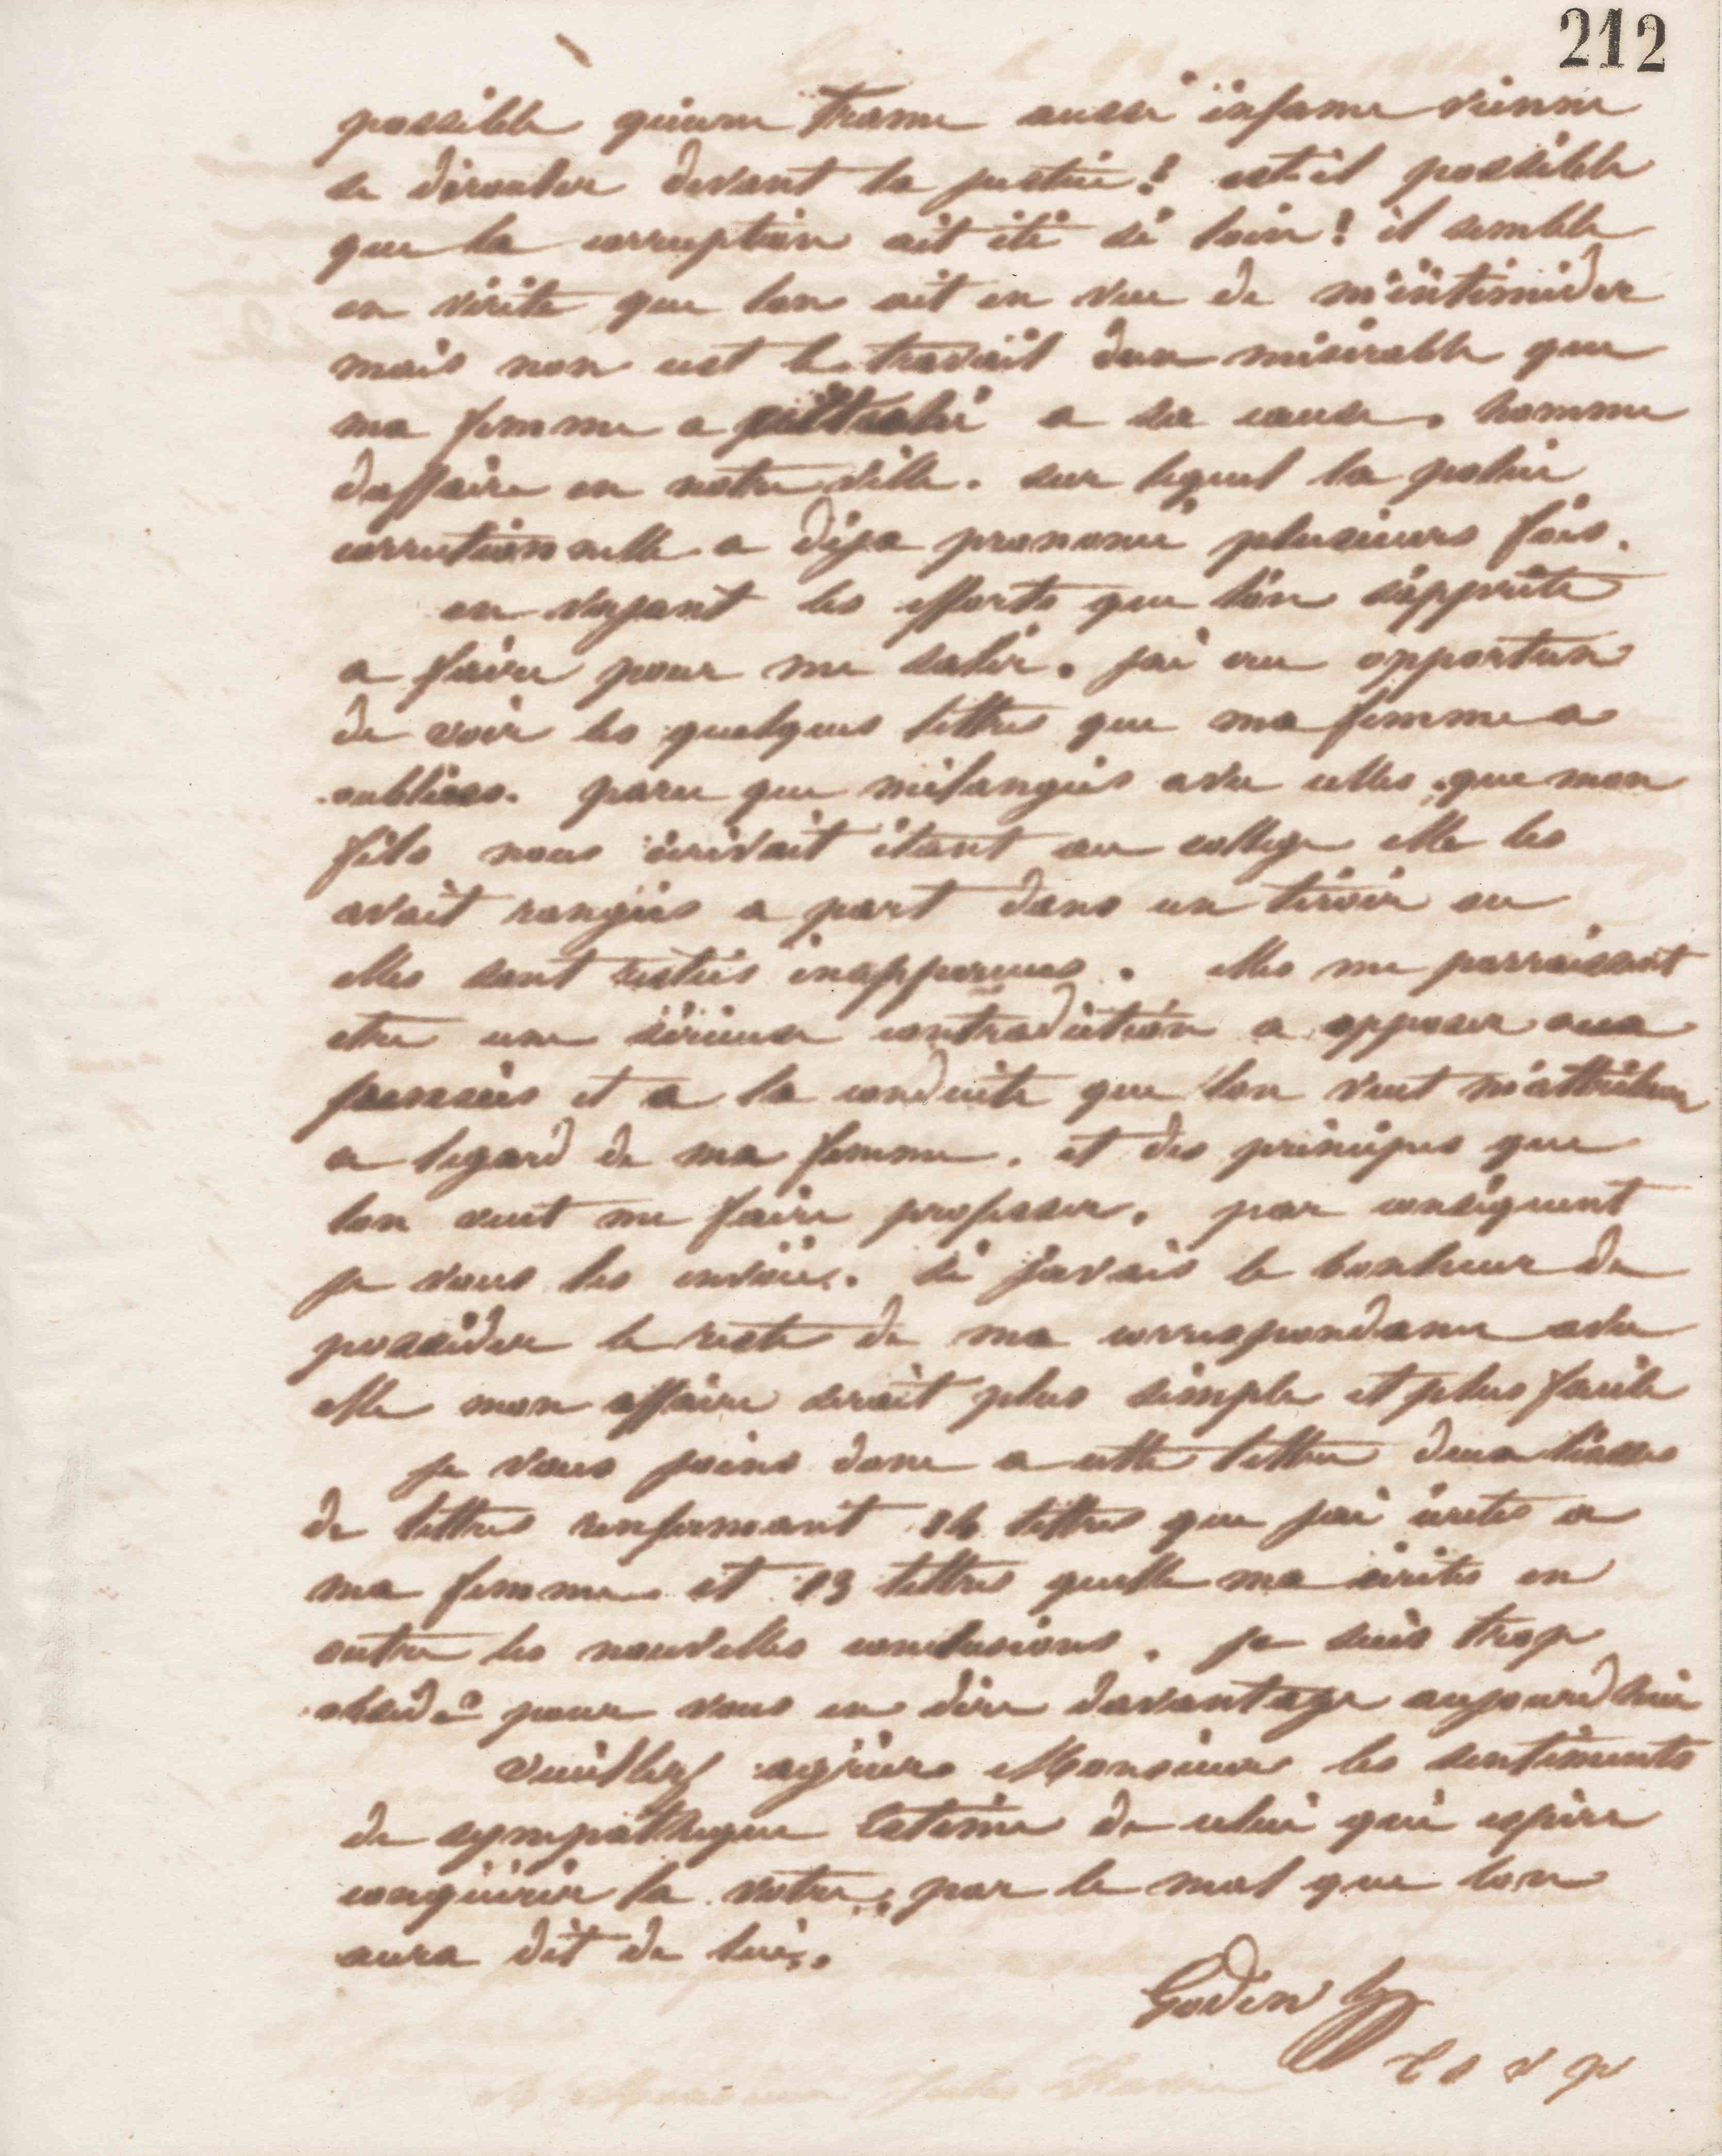 212
possible qu'une trame aussi infame vienne
se dérouler devant la justice! est-il possible
que la corruption ait été si loin! il semble
en vérité que lon ait en vue de m'intimider
mais non cest le travail dun misérable que
ma femme a a sa cause. homme
daffaire en notre ville. sur lequel la police
correctionnelle a déja prononcé plusieurs fois.
en voyant les efforts que l'on s'apprête
a faire pour me salir. jai cru opportun
de voir les quelques lettres que ma femme a
oubliées. parce que mélangées avec celles que mon
fils nous écrivait étant au collège elle les
avait rangées a part dans un tiroir ou
elles sont restées inapperçues. elles me parraissent
etre une sérieuse contradiction a opposer aux
pensées et a la conduite que lon veut m'attribuer
a legard de ma femme. et des principes que
lon veut me faire professer. par conséquent
je vous les envoie. si j'avais le bonheur de
posséder le reste de ma correspondance avec
elle mon affaire serait plus simple et plus facile
je vous joins donc a cette lettre deux liasses
de lettres renfermant lettres que jai écrites a
ma femme et 13 lettres quelle ma écrites en
outre les nouvelles conclusions. je suis trop
obsédé pour vous en dire davantage aujourdhui
veuillez agréer Monsieur les sentiments
de sympathique estime de celui qui espère
conquérir la votre, par le mal que lon
aura dit de lui.
Godin